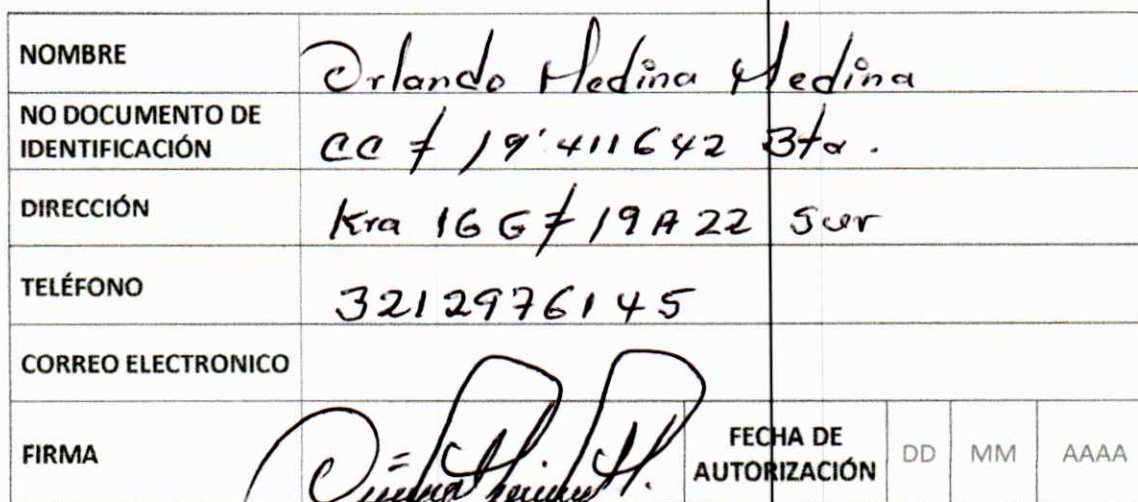 NOMBRE Orlando Medina Medina
NO DOCUMENTO DE
IDENTIFICACIÓN CC # 19'411642 Bta.
DIRECCIÓN Kra 16 G # 19A 22 Sur
TELÉFONO 3212976145
CORREO ELECTRONICO
FIRMA
FECHA DE
AUTORIZACIÓN DD MM AAAA